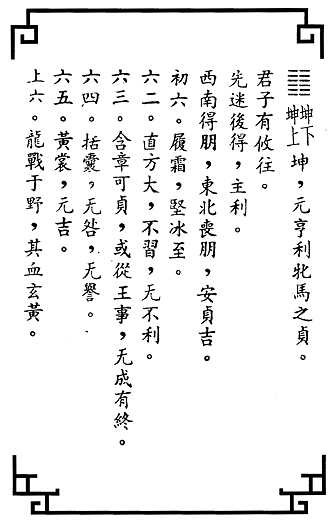 ䷁坤下坤上坤，元亨利牝馬之貞。
君子有攸往。
先迷後得，主利。
西南得朋，東北喪朋，安貞吉。
初六。履霜，堅冰至。
六二。直方大，不習，无不利。
六三。含章可貞，或從王事，无成有終。
六四。括囊，无咎，无譽。
六五。黃裳，元吉。
上六。龍戰于野，其血玄黃。